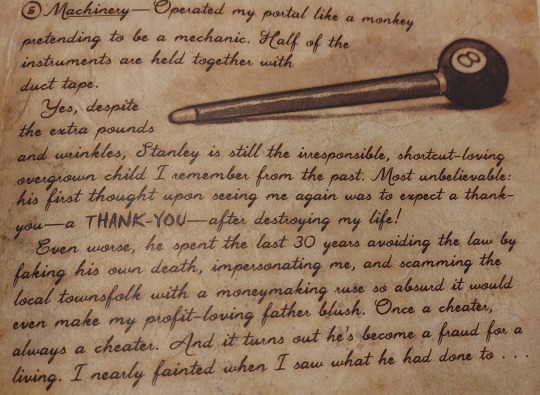 5 Machinery—Operated my portal like a monkey
pretending to be a mechanic. Half of the
instruments are held together with
duct tape.
8
Yes, despite
the extra pounds
and wrinkles, Stanley is still the irresponsible, shortcut-loving
overgrown child I remember from the past. Most unbelievable:
his first thought upon seeing me again was to expect a thank-
you—a THANK-YOU—after destroying my life!
Even worse, he spent the last 30 years avoiding the law by
faking his own death, impersonating me, and scamming the
local townsfolk with a moneymaking ruse so absurd it would
even make my profit-loving father blush. Once a cheater,
always a cheater. And it turns out he's become a fraud for a
living. I nearly fainted when I saw what he had done to . . .